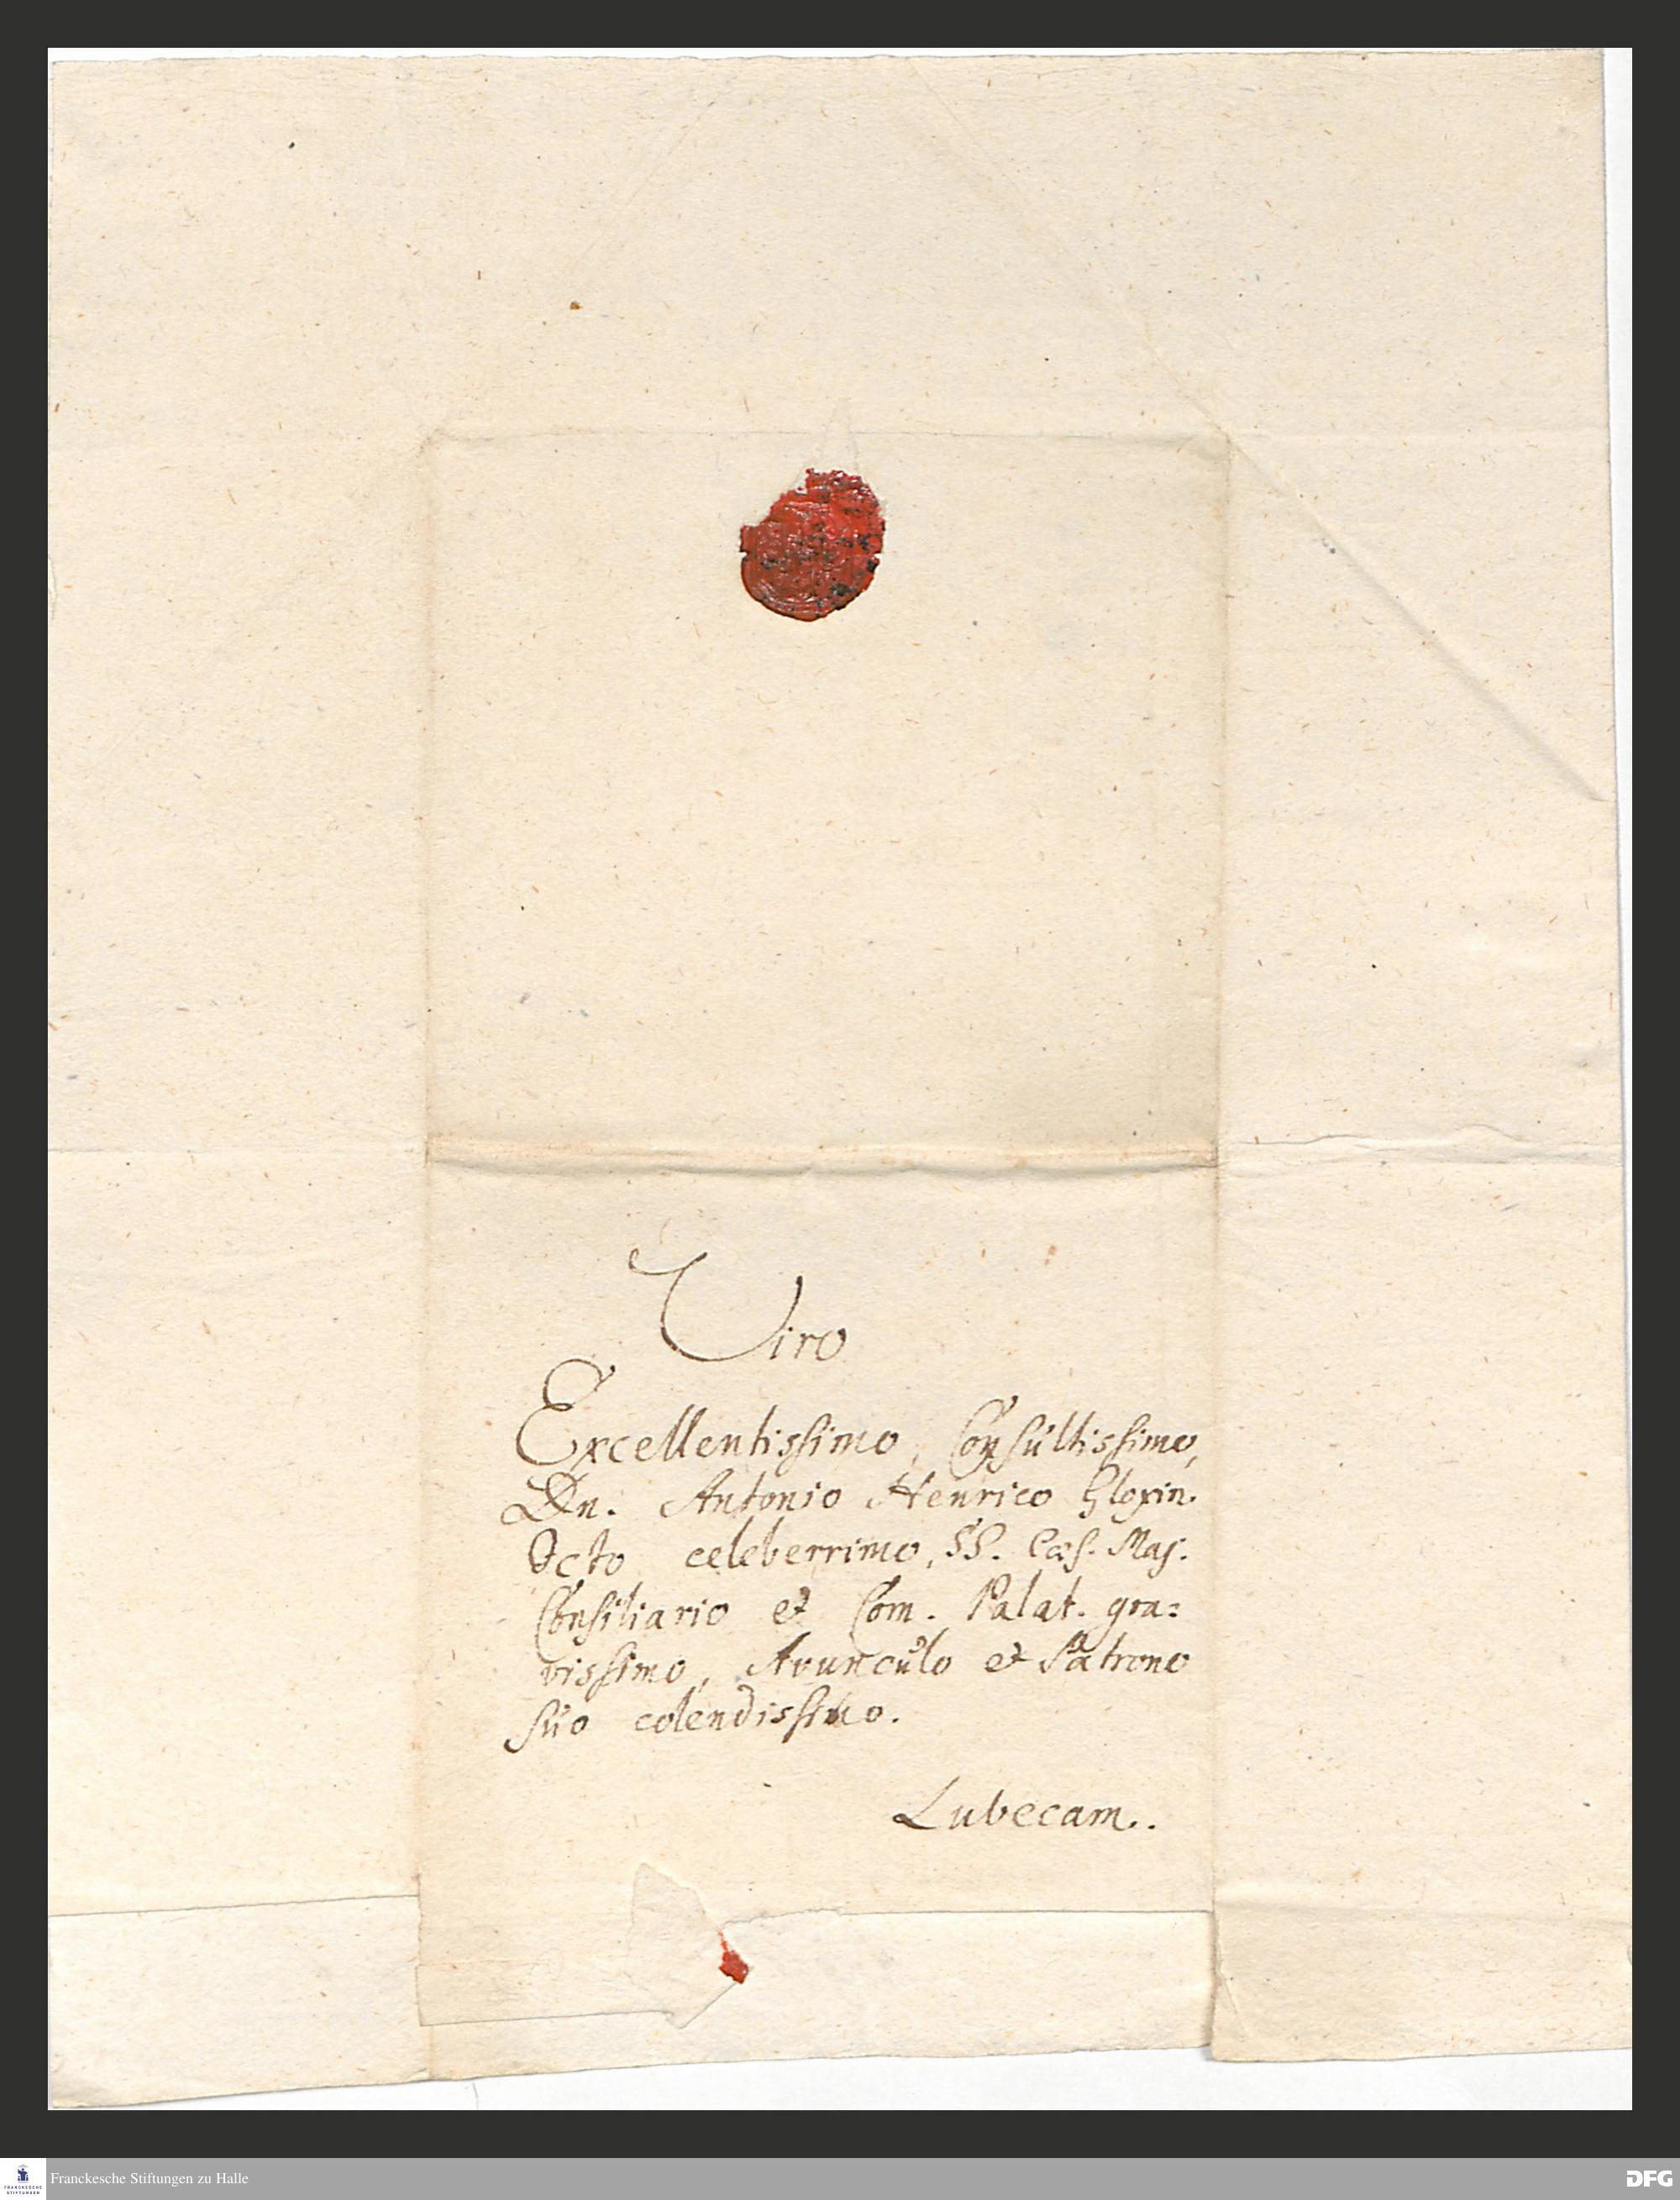 Viro
Excellentissimo, Consultissimo,
Dn. Antonio Henrico Gloxin.
Dcto celeberrimo, SS. Cæs. Maj.
Consiliario et Com. Palat. gra=
vissimo, Avunculo et Patrono
suo colendissimo.
Lubecam..
FRANCKESCHE
STIFTUNGEN
Franckesche Stiftungen zu Halle
DFG